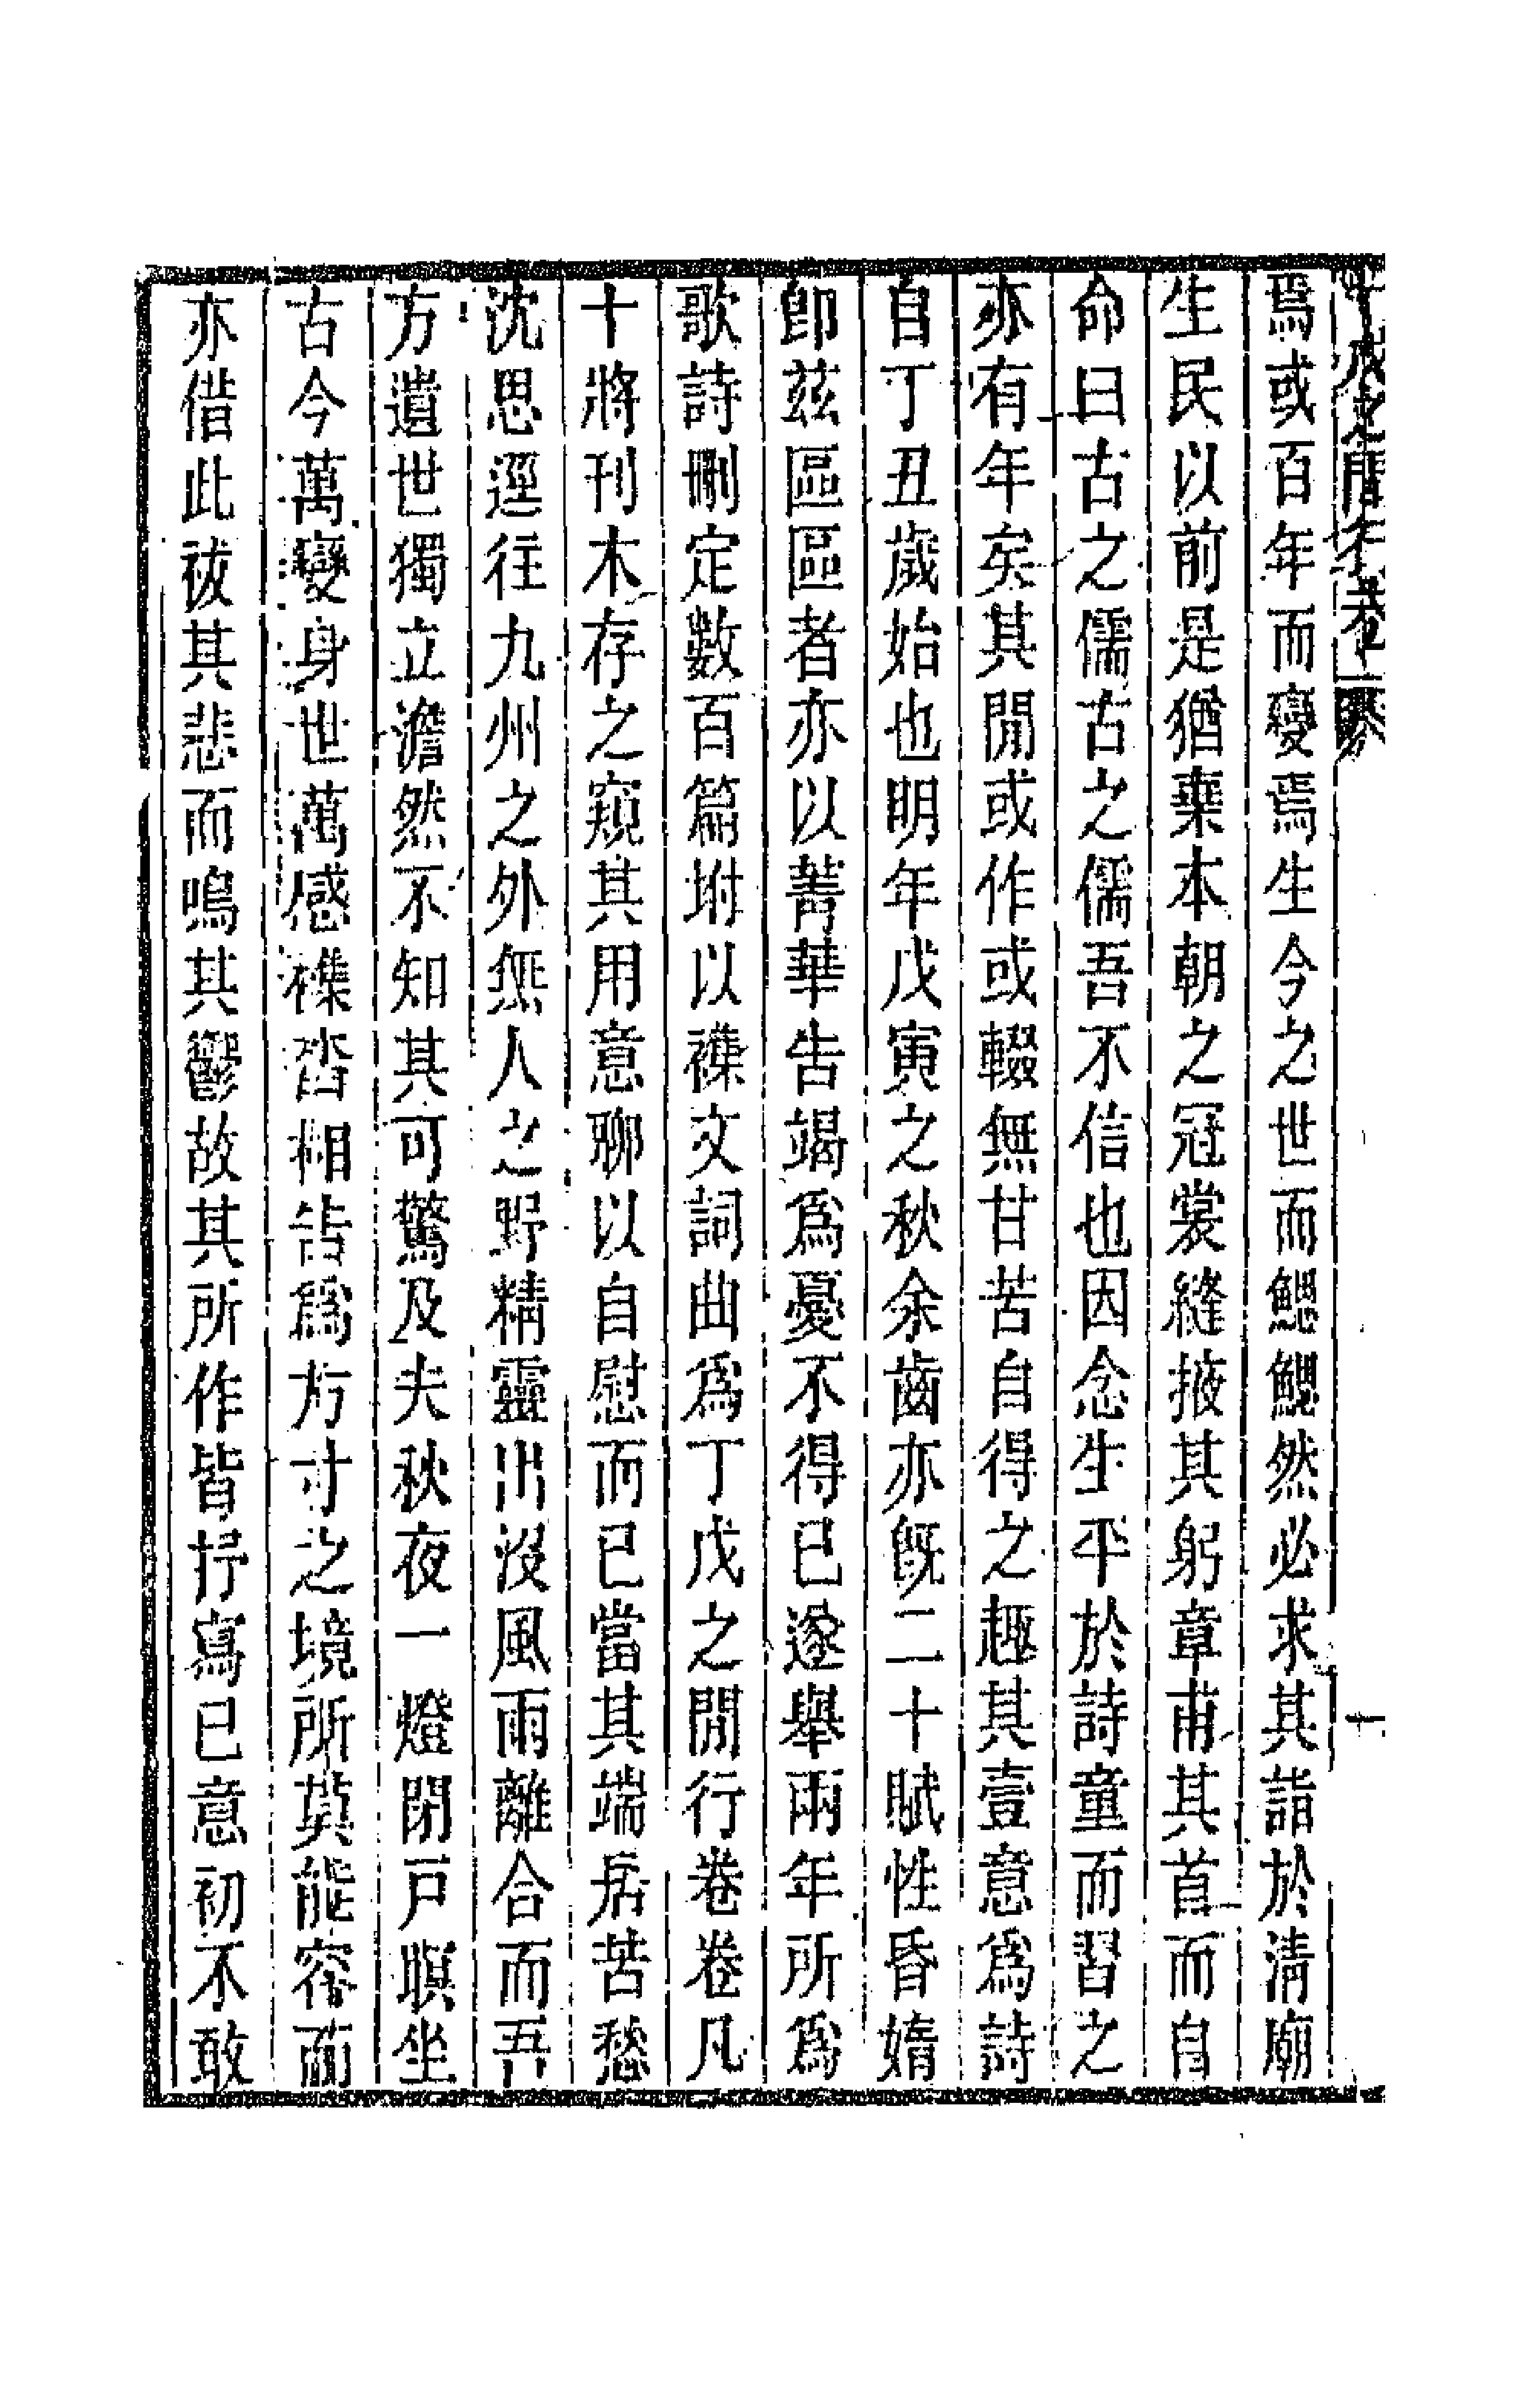 焉或百年而變焉生今之世而鰓鰓然必求其詣於清廟
生民以前是猶棄本朝之冠裳縫掖其躬章甫其首而自
命曰古之儒古之儒吾不信也因念生平於詩童而習之
亦有年矣其閒或作或輟無甘苦自得之趣其壹意爲詩
自丁丑歲始也明年戊寅之秋余齒亦旣二十賦性昏惰
卽兹區區者亦以菁華告竭爲憂不得已遂舉兩年所爲
歌詩刪定數百篇坿以襍文詞曲爲丁戊之閒行卷卷凡
十將刊木存之窺其用意聊以自慰而已當其端居苦愁
沈思遥往九州之外無人之野精靈出沒風雨離合而吾
方遺世獨立澹然不知其可驚及夫秋夜一燈閉戸瞑坐
古今萬變身世萬感襍沓相吿爲方寸之境所莫能容而
亦借此祓其悲而嗚其鬱故其所作皆抒寫已意初不敢